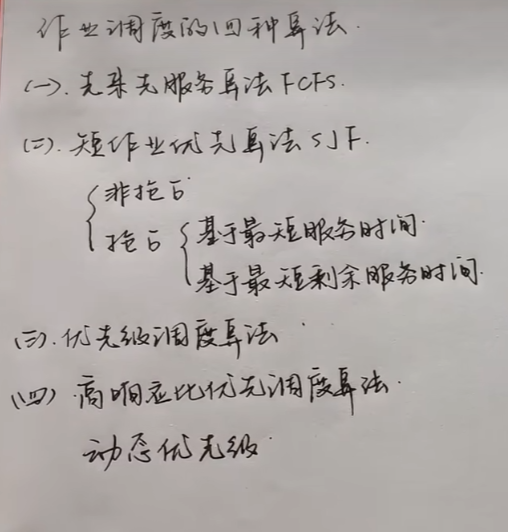 作业调度的四种算法.
(一).先来先服务算法FCFS.
(二).短作业优先算法SJF.
非抢占
抢占 基于最短服务时间.
基于最短剩余服务时间.
(三).优先级调度算法
(四)高响应比优先调度算法.
动态优先级.